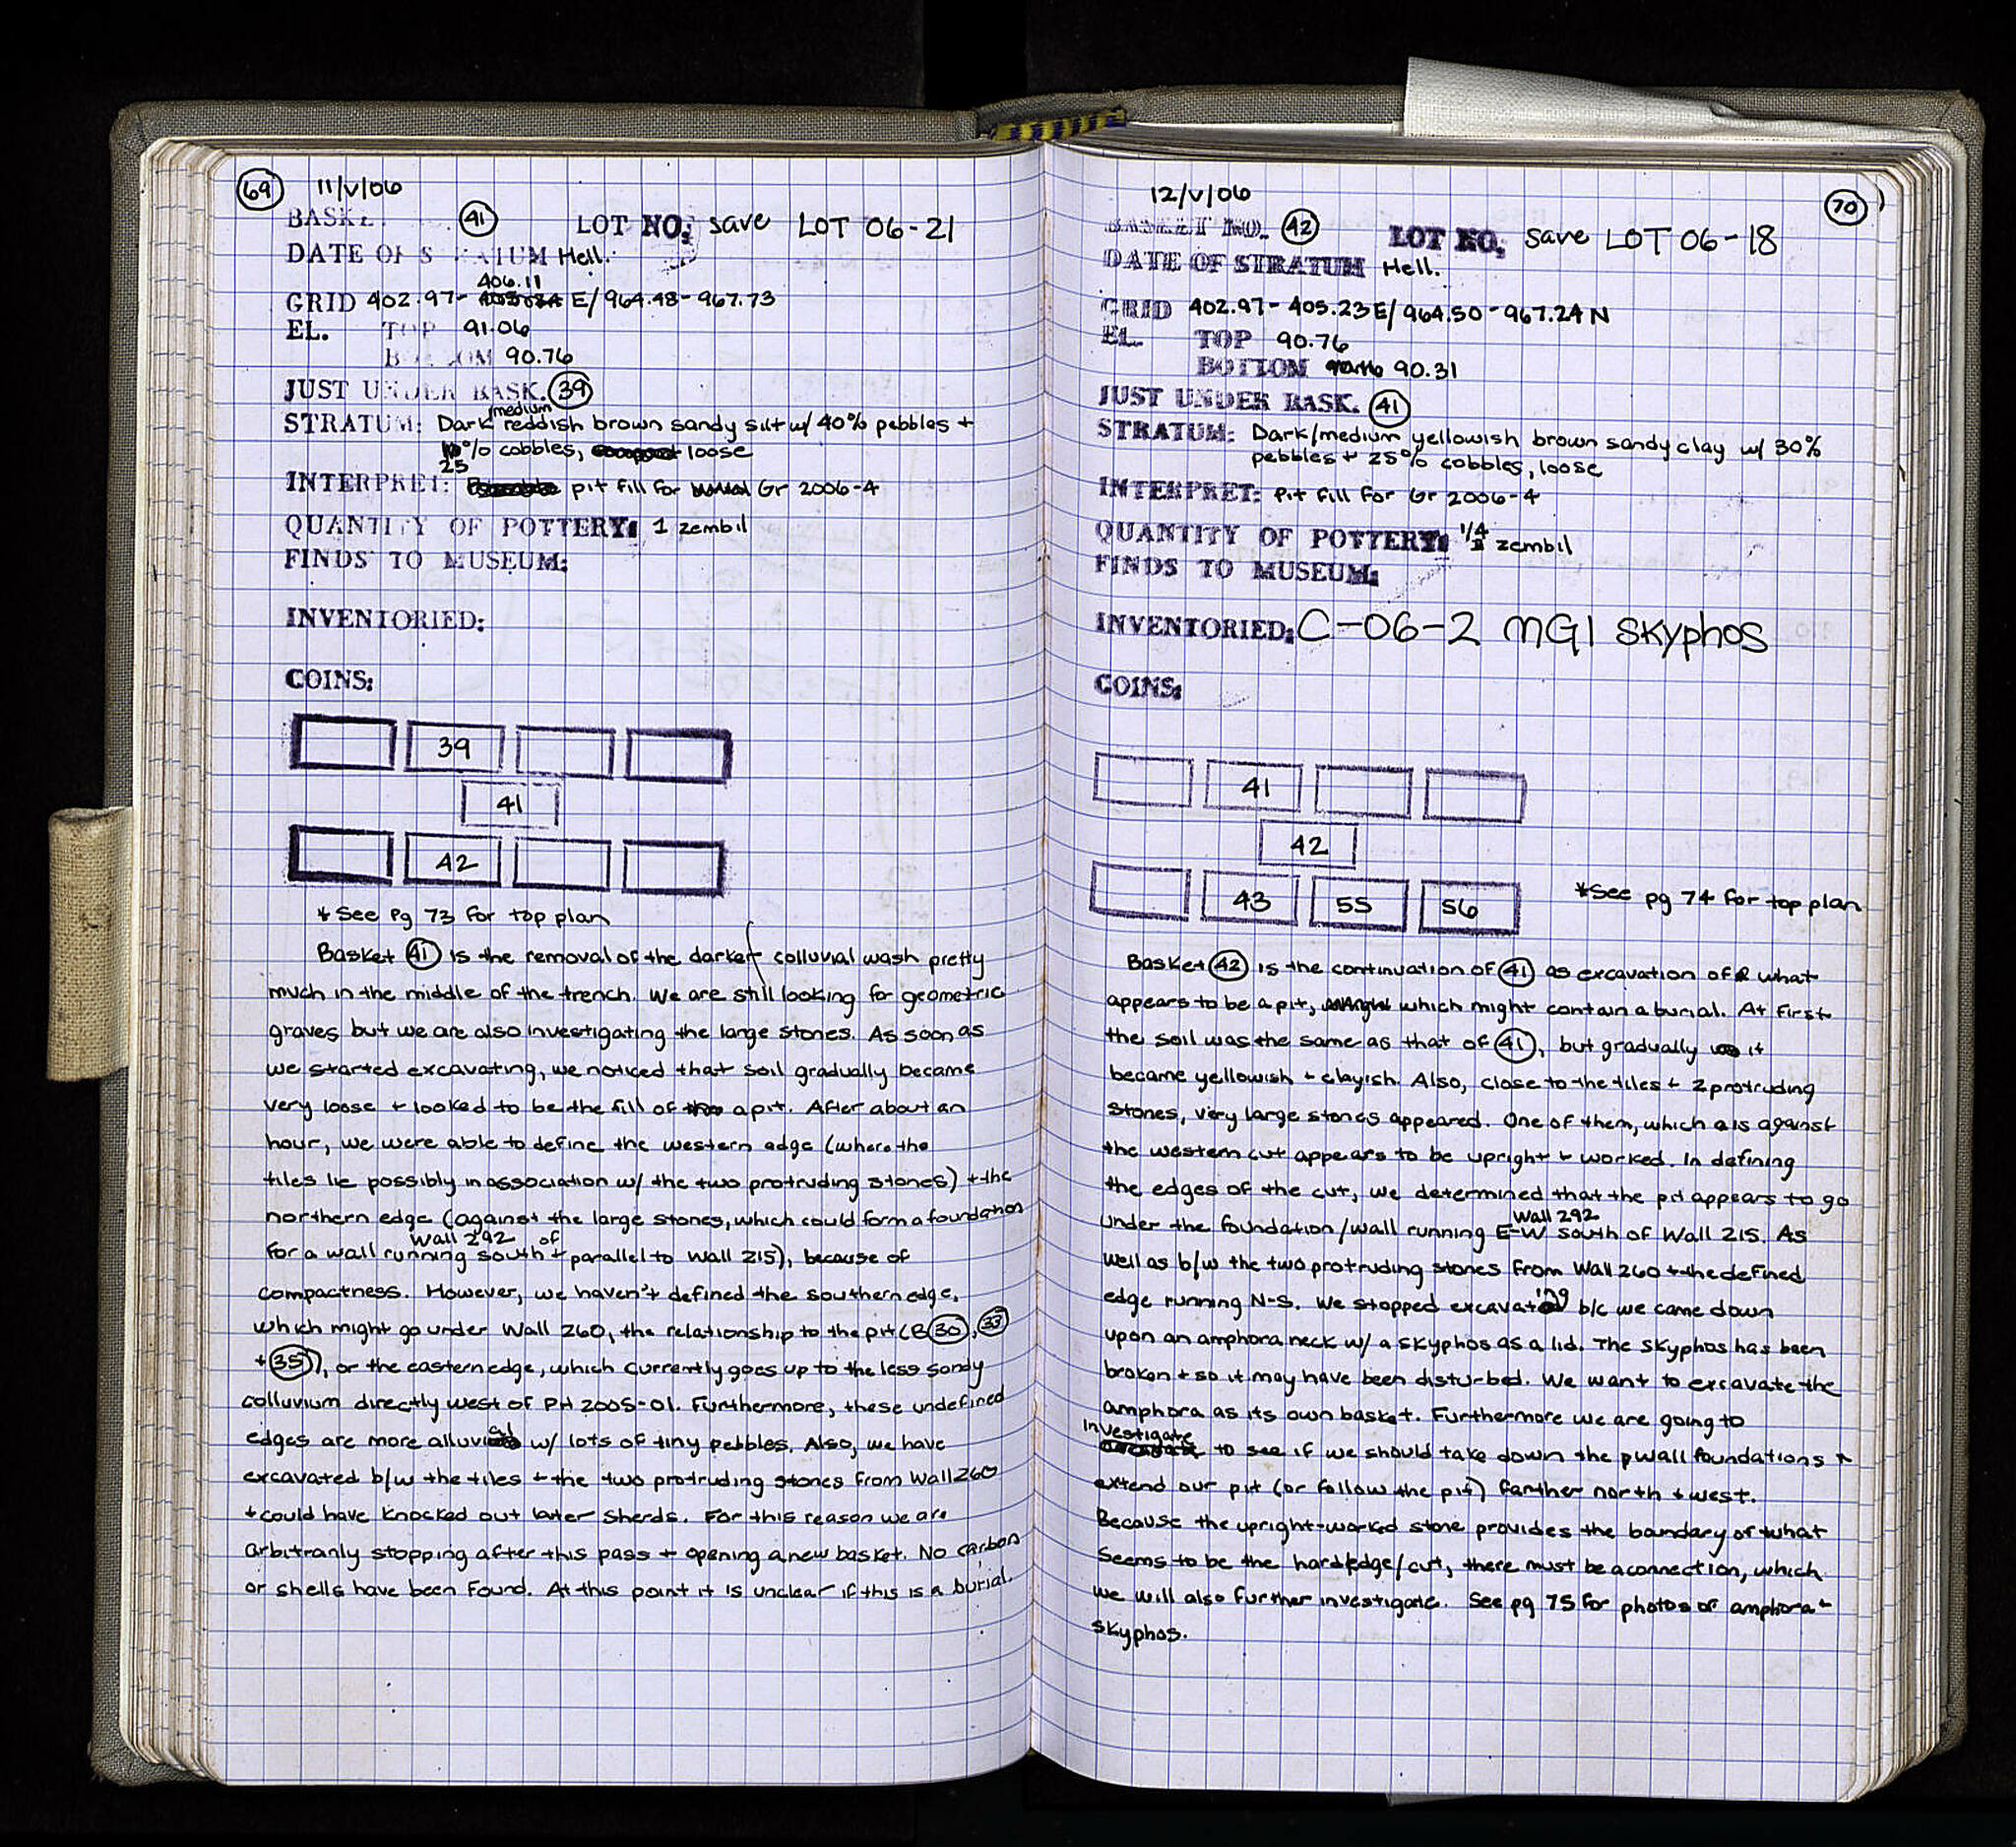 69 11/V/06
BASKE. 41 LOT NO; save LOT 06-21
DATE OF S ATUM Hell.
406.11
GRID 402.97- E/964.48-967.73
EL. TOP 91.06
B OM 90.76
JUST UNDER BASK. 39
medium
STRATUM: Dark reddish brown sandy silt w/ 40% pebbles +
% cobbles, loose
25
INTERPRET: pit fill for Gr 2006-4
QUANTITY OF POTTERY: 1 zembil
FINDS TO MUSEUM:
INVENTORIED:
COINS:
39
41
42
*See pg 73 for top plan
Basket 41 is the removal of the darker colluvial wash pretty
much in the middle of the trench. We are still looking for geometric
graves but we are also investigating the large stones. As soon as
we started excavating, we noticed that soil gradually became
very loose + looked to be the fill of a pit. After about an
hour, we were able to define the western edge (where the
tiles lie possibly in association w/ the two protruding stones) + the
northern edge (against the large stones, which could form a foundation
Wall 292 of
for a wall running south + parallel to Wall 215), because of
compactness. However, we haven't defined the southern edge,
which might go under Wall 260, the relationship to the pit (B 30, 33
+ 35), or the eastern edge, which currently goes up to the less sandy
colluvium directly west of PH 2005-01. Furthermore, these undefined
edges are more alluvial w/ lots of tiny pebbles. Also, we have
excavated b/w the tiles + the two protruding stones from Wall 260
+ could have knocked out later sherds. For this reason we are
arbitrarily stopping after this pass + opening a new basket. No carbon
or shells have been found. At this point it is unclear if this is a burial.
12/V/06 70
BASKET NO. 42 LOT NO. save LOT 06-18
DATE OF STRATUM Hell.
GRID 402.97-405.23E/964.50-967.24N
EL. TOP 90.76
BOTTOM 90.31
JUST UNDER BASK. 41
STRATUM: Dark/medium yellowish brown sandy clay w/ 30%
pebbles + 25% cobbles, loose
INTERPRET: pit fill for Gr 2006-4
QUANTITY OF POTTERY: 1/4 zembil
FINDS TO MUSEUM:
INVENTORIED: C-06-2 MGI Skyphos
COINS:
41
42
43 55 56
*See pg 74 for top plan
Basket 42 is the continuation of 41 as excavation of what
appears to be a pit, which might contain a burial. At first
the soil was the same as that of 41, but gradually it
became yellowish + clayish. Also, close to the tiles + 2 protruding
stones, very large stones appeared. One of them, which is against
the western cut appears to be upright + worked. In defining
the edges of the cut, we determined that the pit appears to go
Wall 292
under the foundation/wall running E-W south of Wall 215. As
well as b/w the two protruding stones from Wall 260 + the defined
edge running N-S. We stopped excavating b/c we came down
upon an amphora neck w/ a skyphos as a lid. The skyphos has been
broken + so it may have been disturbed. We want to excavate the
amphora as its own basket. Furthermore we are going to
investigate
to see if we should take down the wall foundations +
extend our pit (or follow the pit) farther north + west.
Because the upright-worked stone provides the boundary of what
seems to be the hard edge/cut, there must be a connection, which
we will also further investigate. See pg 75 for photos of amphora +
skyphos.